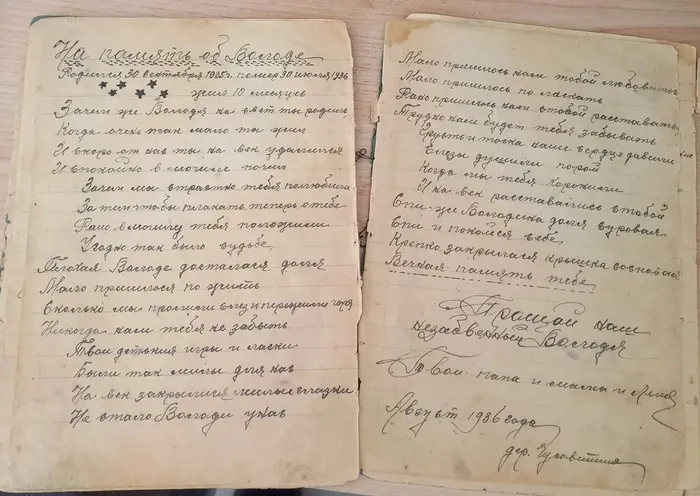 На память об Володе
Родился 30 сентября 1935г помер 30 июля 1936
жил 10 месяцев
Зачем же Володя на свет ты родился
Когда очень так мало ты жил
И скоро от нас ты на век удалился
И спокойно в могиле почил
Зачем мы страстно тебя полюбили
Затем чтобы плакать теперь о тебе
Рано в могилу тебя положили
Угодно так было судьбе
Тяжкая Володе досталася доля
Мало пришлося по жить
Сколько мы пролили слез и пережили горя
Никогда нам тебя не забыть
Твои детския игры и ласки
Были так милы для нас
На век закрылися милые глазки
Не стало Володи у нас
Мало пришлось нам тобой любоваться
Мало пришлось по ласкать
Рано пришлось нам с тобой расставаться
Трудно нам будет тебя забывать
Грусть и тоска наши сердце давили
Слезы душили порой
Когда мы тебя хоронили
И на век расставались с тобой
Спи же Володинка доля суровая
Спи и покойся себе
Крепко закрылася крышка сосновая
Вечная память тебе
Прощай наш
незабвенный Володя
Твои папа и мама и
Август 1936 года
дер.